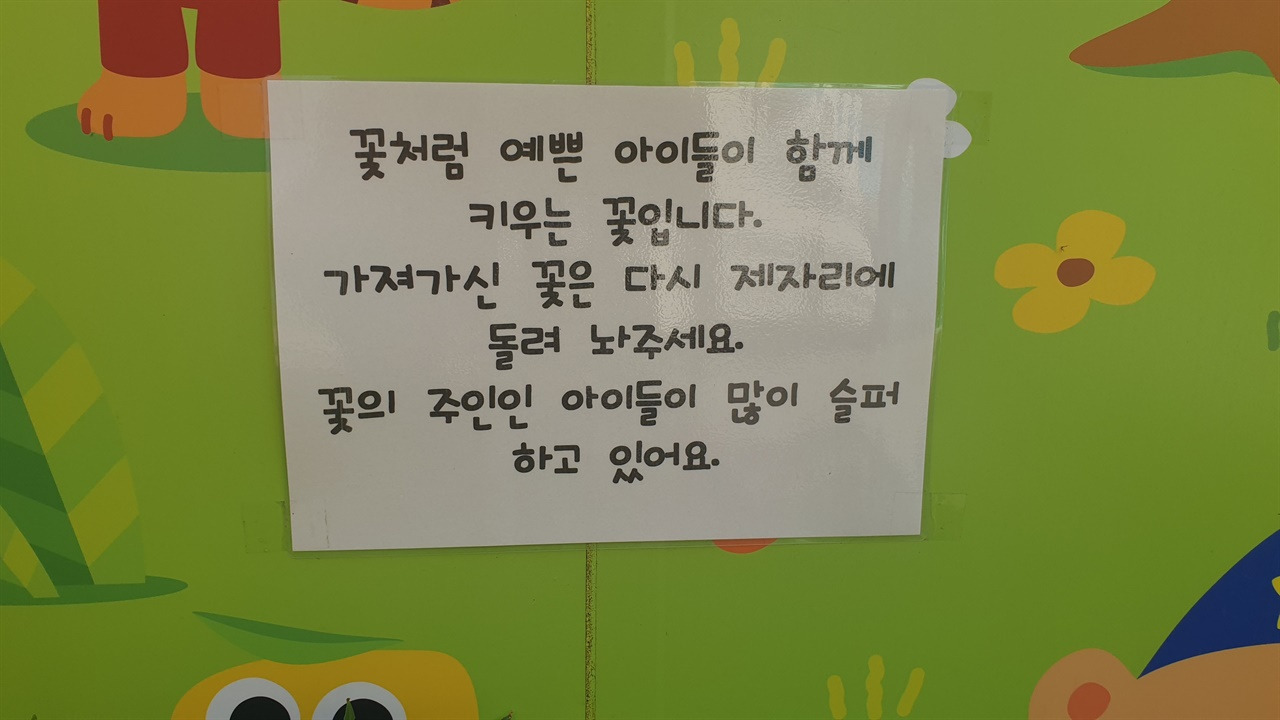 꽃처럼 예쁜 아이들이 함께
키우는 꽃입니다.
가져가신 꽃은 다시 제자리에
돌려 놔주세요.
꽃의 주인인 아이들이 많이 슬퍼
하고 있어요.